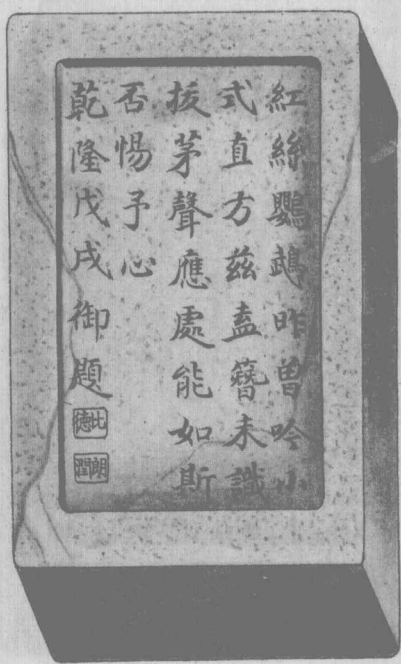 紅絲鸚鵡昨曾吟小
式直方茲盍簪未識
拔茅聲應處能如斯
否惕予心
乾隆戊戌御題
比德
朗潤